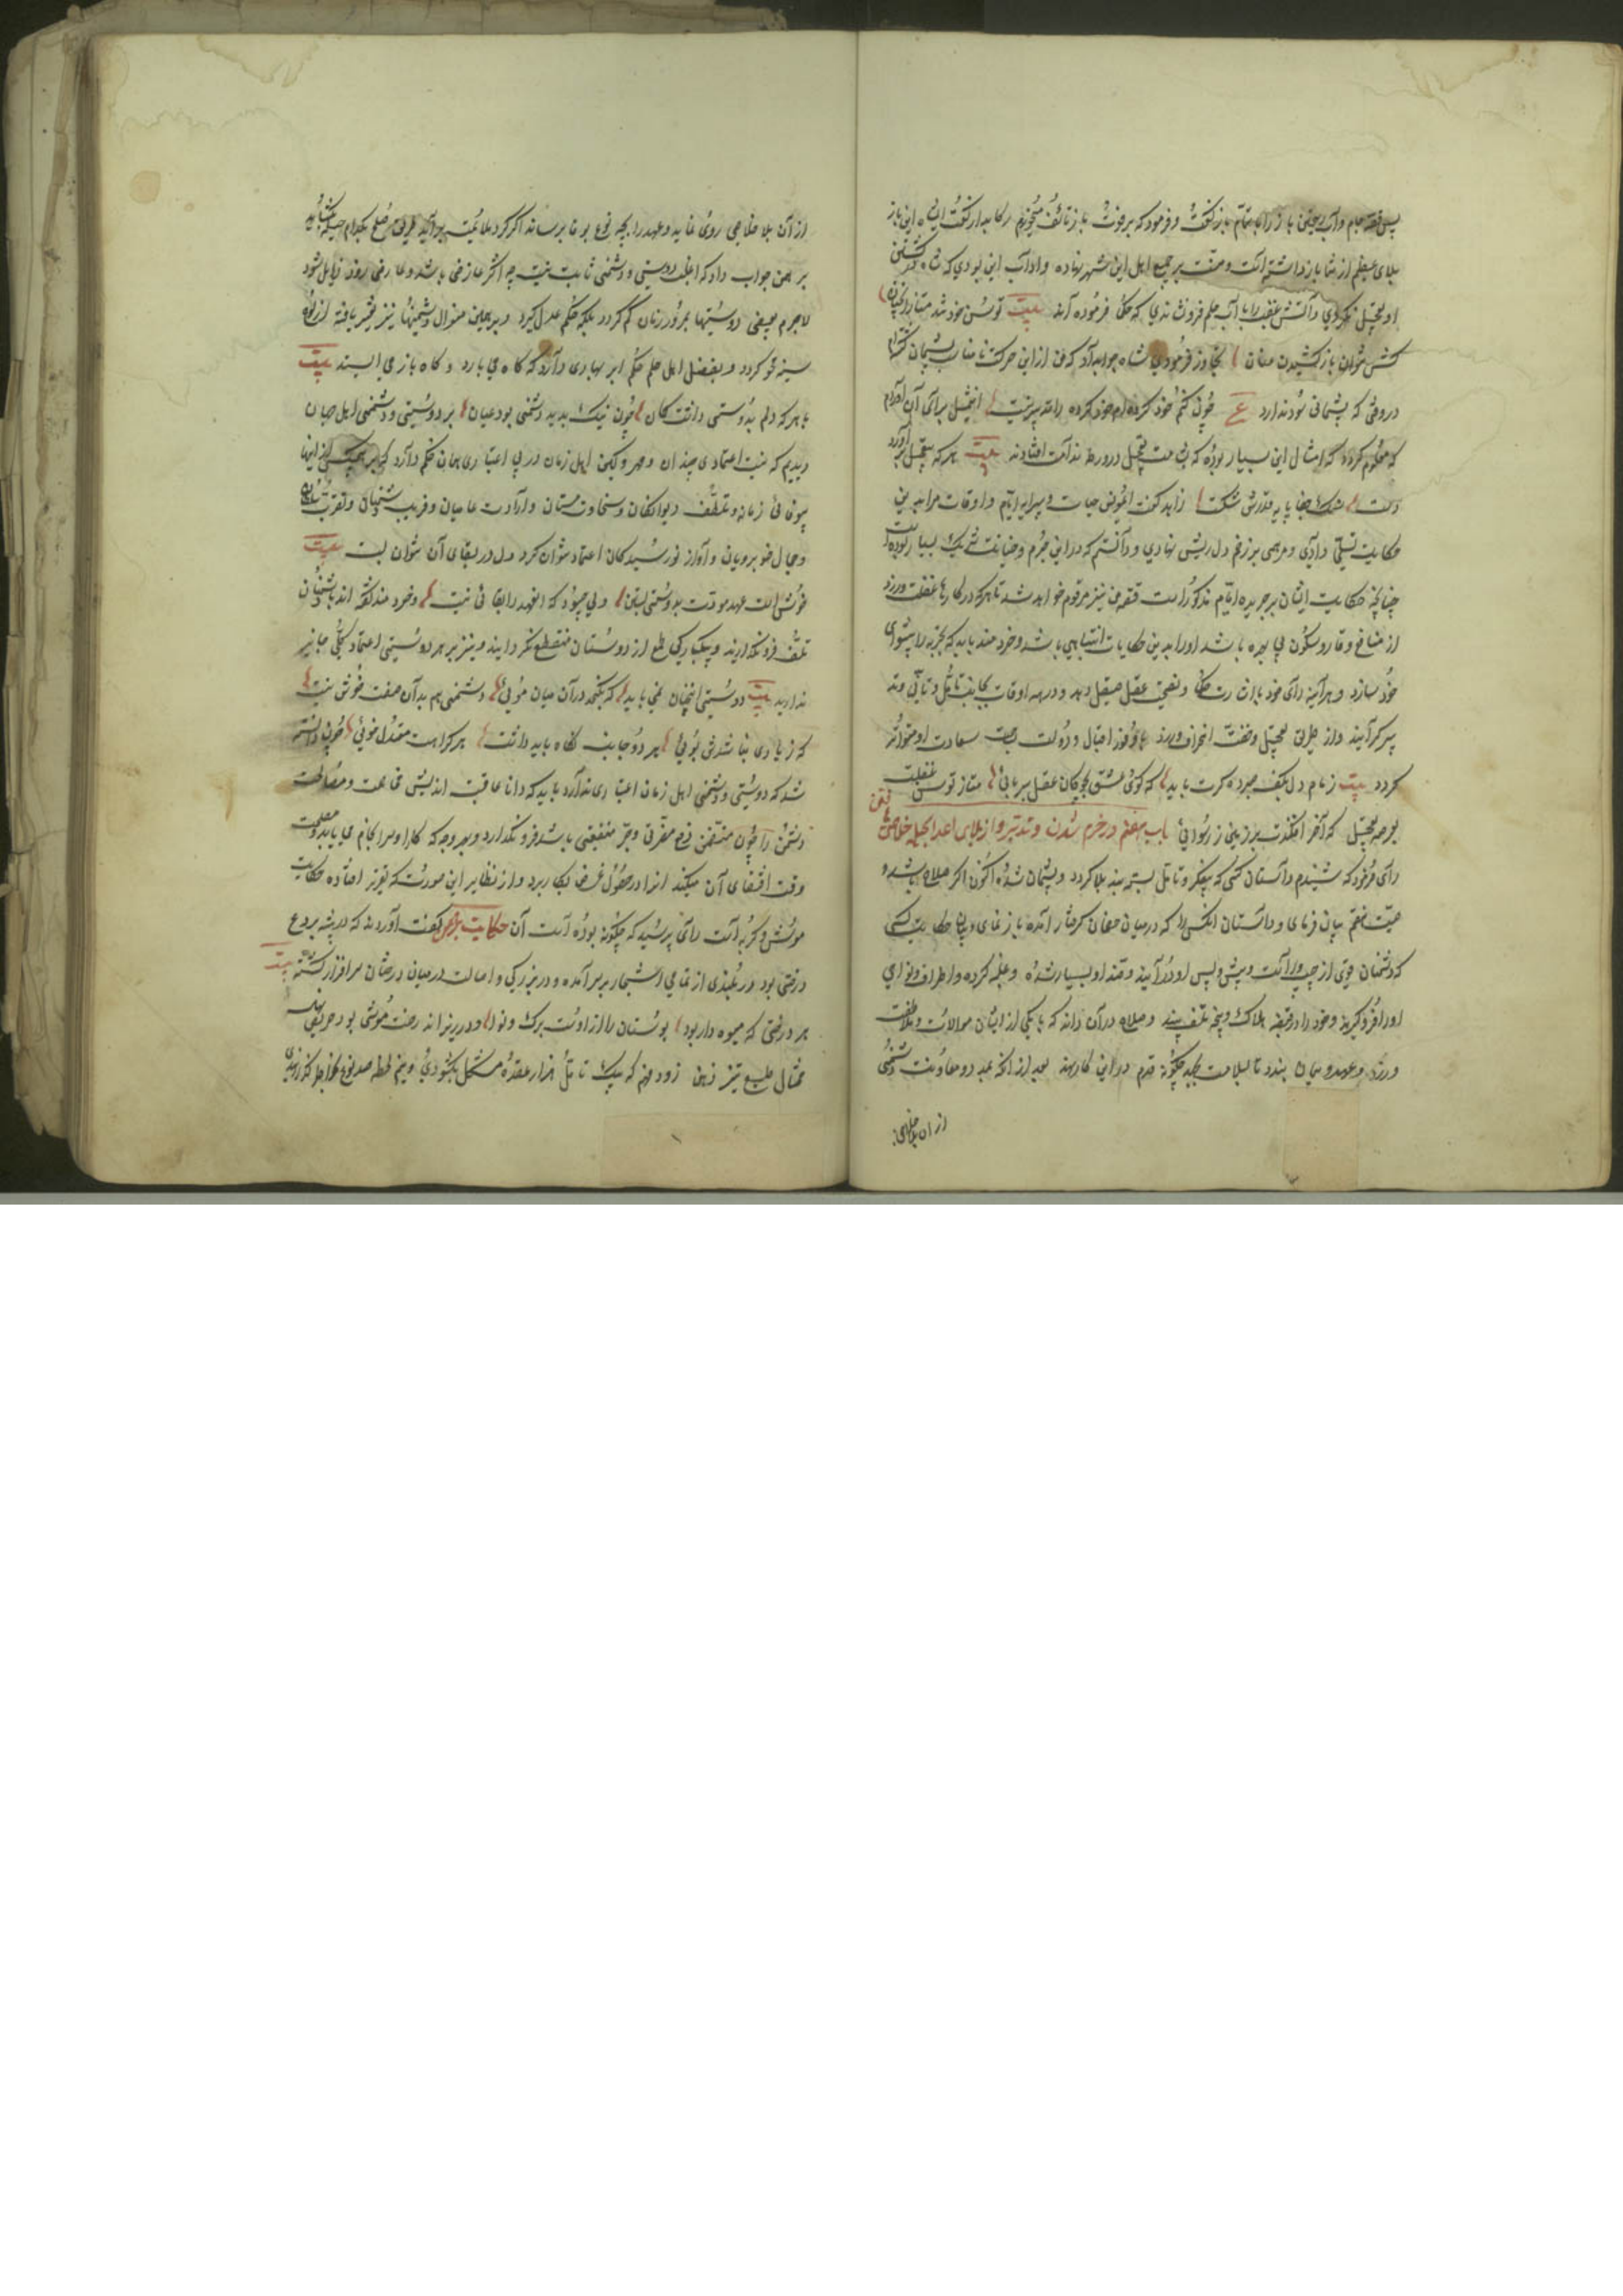 پس قصه جام و آب ریختن باز را بتمام باز گفت و فرمود که بر فوت باز تاسف میخورم رکابدار گفت ای شاه این باز
بلای عظیم از شما باز داشته است و منت بر جمیع اهل این شهر نهاده و اداب این بودی که شاه در کشتن
او تعجیل نکردی و آتش غضب را باب حلم فرو نشاندی که حکما فرموده اند بیت توسن خود شد متاز آنچنان
کش نتوان باز کشیدن عنان تجاوز فرمودی شاه جواب داد که من از این حرکت نامناسب پشیمان گشته‌ام
در وقتی که پشیمانی سود ندارد ع چون کنم خود کرده ام خود کرده را تدبیر نیست این مثل برای آن آوردم
که معلوم گردد که امثال این بسیار بوده که بشامت تعجیل در ورطه ندامت افتادند بیت هر که بتعجیل بر آورد
دست سنگ جفا پایه قدرش شکست زاهد گفت ای مونس حیات و پیرایه ایام و اوقات مرا بدین
حکایت تسلی دادی و مرهمی بر زخم دل ریش نهادی و دانستم که در این جرم و خیانت شریک بسیار بوده است
چنانچه حکایت ایشان بر جریده ایام مذکور است قصه من نیز مرقوم خواهد شد تا هر که در کارها غفلت ورزد
از منافع وقار و سکون بی بهره باشد او را بدین حکایات انتباهی باشد و خردمند باید که تجربه را پیشوای
خود سازد و هر آینه رای خود باشارت حکما و نصیحت عقل صیقل دهد و در همه اوقات بجانب تامل و تانی و تد
بیر گراید و از طریق تعجیل و خفت انحراف ورزد تا وفور اقبال و دولت بجهت سعادت او متواتر
گردد بیت زمام دل بکف صبر ده گرت باید که گوی عشق بچوگان عقل بربائی متاز توسن غفلت
بعرصه تعجیل که آخر افکندت بر زمین ز رسوائی باب هفتم در حزم شدن و تدبیر و از بلای اعدا بحیله خلاصی یافتن
رای فرمود که شنیدم داستان کسی که بیفکر و تامل بسته بند بلا گردد و پشیمان شده اکنون اگر صلاح باشد و
صیت ختم بیان فرمای و داستان آنکس را که درمیان خصمان گرفتار آمده باز نمای و بیان حکایت کسی
که دشمنان قوی از چپ و راست و پیش و پس او در آیند و قصد او بسیار شده و غلبه کرده و اطراف و نواحی
او را فرو گیرند و خود را در قبضه هلاک و پنجه تلف بیند و صلاح در آن داند که با یکی از ایشان موالات و ملاطفت
ورزد و عهد و پیمان بندد تا بسلامت بجهد چگونه قدم در این کار نهد بعد از آنکه بمدد و معاونت دشمنی
از آن بلا خلاصی
از آن بلا خلاصی روی نماید و عهد را بچه نوع بوفا رساند اگر گرد ملائمت برآید طریق صلح بکدام حیله بگشاید
برهمن جواب داد که اغلب دوستی و دشمنی ثابت نیست چه اکثر عارضی باشد و عارضی زود زایل شود
لاجرم بعضی دوستیها بمرور زمان کم گردد بلکه حکم عدل گیرد و بر همین منوال دشمنیها نیز تغیر یافته از لوح
سینه محو گردد و بغضل اهل حلم حکم ابر بهاری دارد که گاه می بارد و گاه باز می ایستد بیت
با هر که دلم بدوستی داشت گمان چون نیک بدید دشمنی بود عیان بر دوستی و دشمنی اهل جهان
دیدیم که نیست اعتمادی چندان و مهر و کین اهل زمان در بی اعتباری همان حکم دارد که بر هیچیک از اینها
بیوفائی زمانه و تلطف دیوانگان و سخاوت مستان و ارادت عامیان و فریب دشمنان و تقرب سلطان
و جمال خوبرویان و آواز نورسیدگان اعتماد نتوان کرد و دل در بقای آن نتوان بست بیت
خوش است عهد مودت بدوستی بستن ولی چه سود که این عهد را بقائی نیست و خردمند گفته اند با دشمنان
تلطف فرو نگذارند و بیکبارگی طمع از دوستان منقطع نگردانند و نیز بر هر دوستی اعتماد کلی جایز
ندارید بیت دوستی آنچنان نمی باید که نگنجد در آن میان موئی دشمنی هم بدان صفت خوش نیست
که ز یاری نباشدش بوئی هر دو جانب نگاه باید داشت هر کرا هست معتدل خوئی چون دانسته
شد که دوستی و دشمنی اهل زمان اعتباری ندارد باید که دانا عاقبت اندیش قناعت و مصالحت
دشمن را چون متضمن دفع مضرتی و جر منفعتی باشد فرو نگذارد و بهر وجه که کار او سرانجام می یابد و مصلحت
وقت اقتضای آن میکند آنرا در حصول غرض بکار برد و از نظایر این صورت که بتقریر افتاده حکایت
موش و گربه است رای پرسید که چگونه بوده است آن حکایت برهمن گفت آورده اند که در بیشه بردع
درختی بود در بلندی از تمامی اشجار بر سر آمده و در بزرگی و اصالت درمیان درختان سرافراز گشته بیت
هر درختی که میوه دار بود بوستان را از اوست برگ و نوا و در زیر آن درخت موشی بود حریص
محتال طبع تیز ذهن زود فهم که بیک تامل هزار عقده مشکل بگشودی و نیم لحظه صد نوع